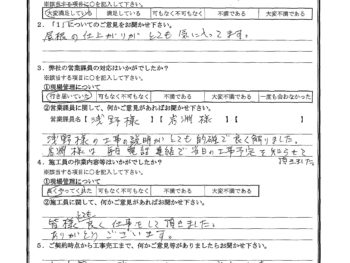 ※該当する項目に○を記入して下さい。
大変満足している 満足している 可も無く不可も無く 不満である 大変不満である
2．「1」についてのご意見をお聞かせ下さい。
屋根の仕上がりが とても 気に入ってます。
3．弊社の営業課員の対応はいかがでしたか？
※該当する項目に○を記入して下さい。
①現場管理について
行き届いていた 可もなく不可もなく 不満である 大変不満である 一度も会わなかった
②営業課員に関して、何かご意見があればお聞かせ下さい。
営業課員名【 浅野様 】【 岩渕様 】【 】
浅野様の工事の説明がとても的確で良く解りました。
岩渕様は 毎日 電話連絡で当日の工事予定を知らせて
頂きました。
4．施工員の作業内容等はいかがでしたか？
※該当する項目に○を記入して下さい。
①現場管理について
良くやってくれた 可もなく不可もなく 不満である 大変不満である
②施工員に関して、何かご意見があればお聞かせ下さい。
とても
皆様 良く 仕事をして頂きました。
ありがとう ございます。
5．ご契約時点から工事完工まで、何かご意見等がありましたらお聞かせ下さい。